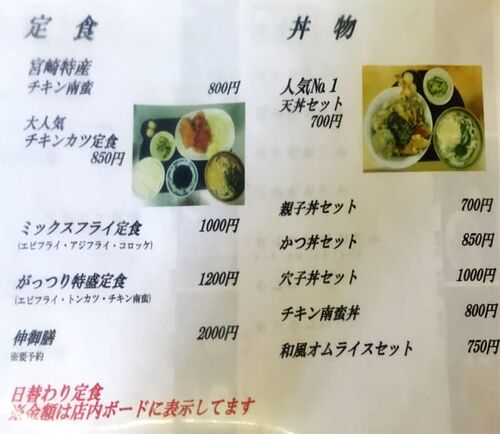 定食
宮崎特産
チキン南蛮 800円
大人気
チキンカツ定食
850円
ミックスフライ定食 1000円
(エビフライ・アジフライ・コロッケ)
がっつり特盛定食 1200円
(エビフライ・トンカツ・チキン南蛮)
伸御膳 2000円
※要予約
日替わり定食
※金額は店内ボードに表示してます
丼物
人気No.1
天丼セット
700円
親子丼セット 700円
かつ丼セット 850円
穴子丼セット 1000円
チキン南蛮丼 800円
和風オムライスセット 750円